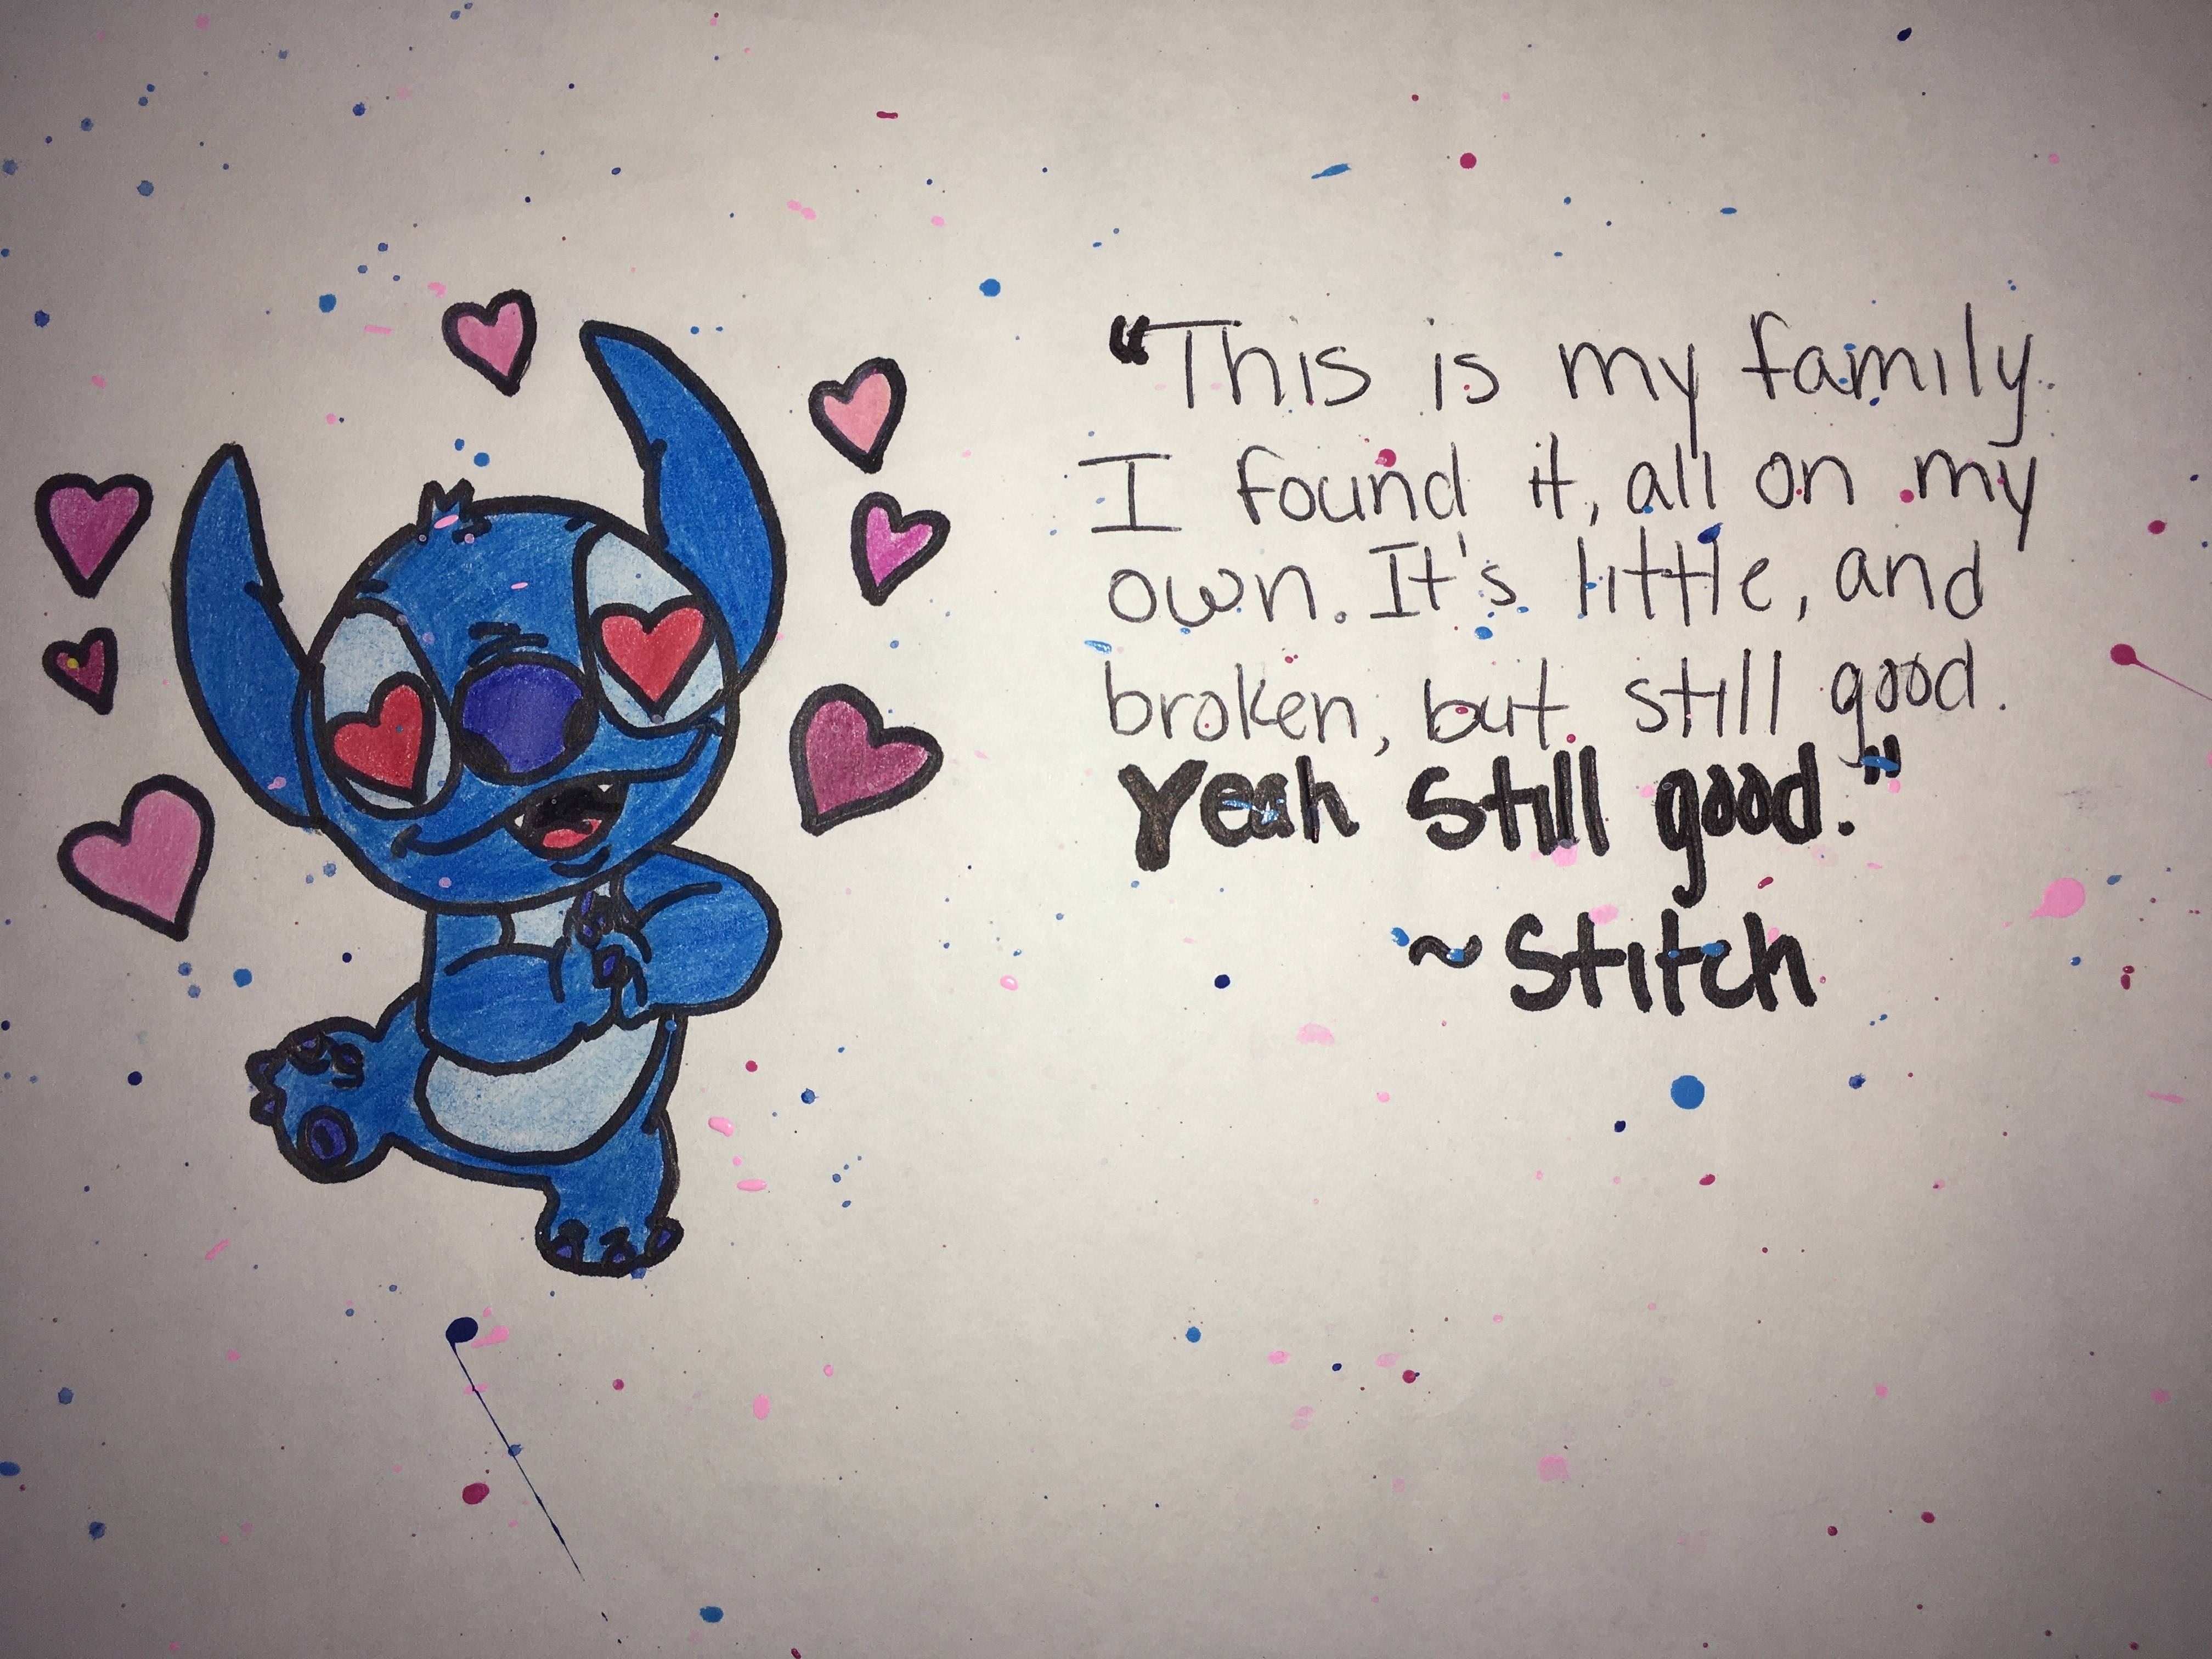 “This is my family.
I found it, all on my
own. It's little, and
broken, but still good.
Yeah still good."
~Stitch